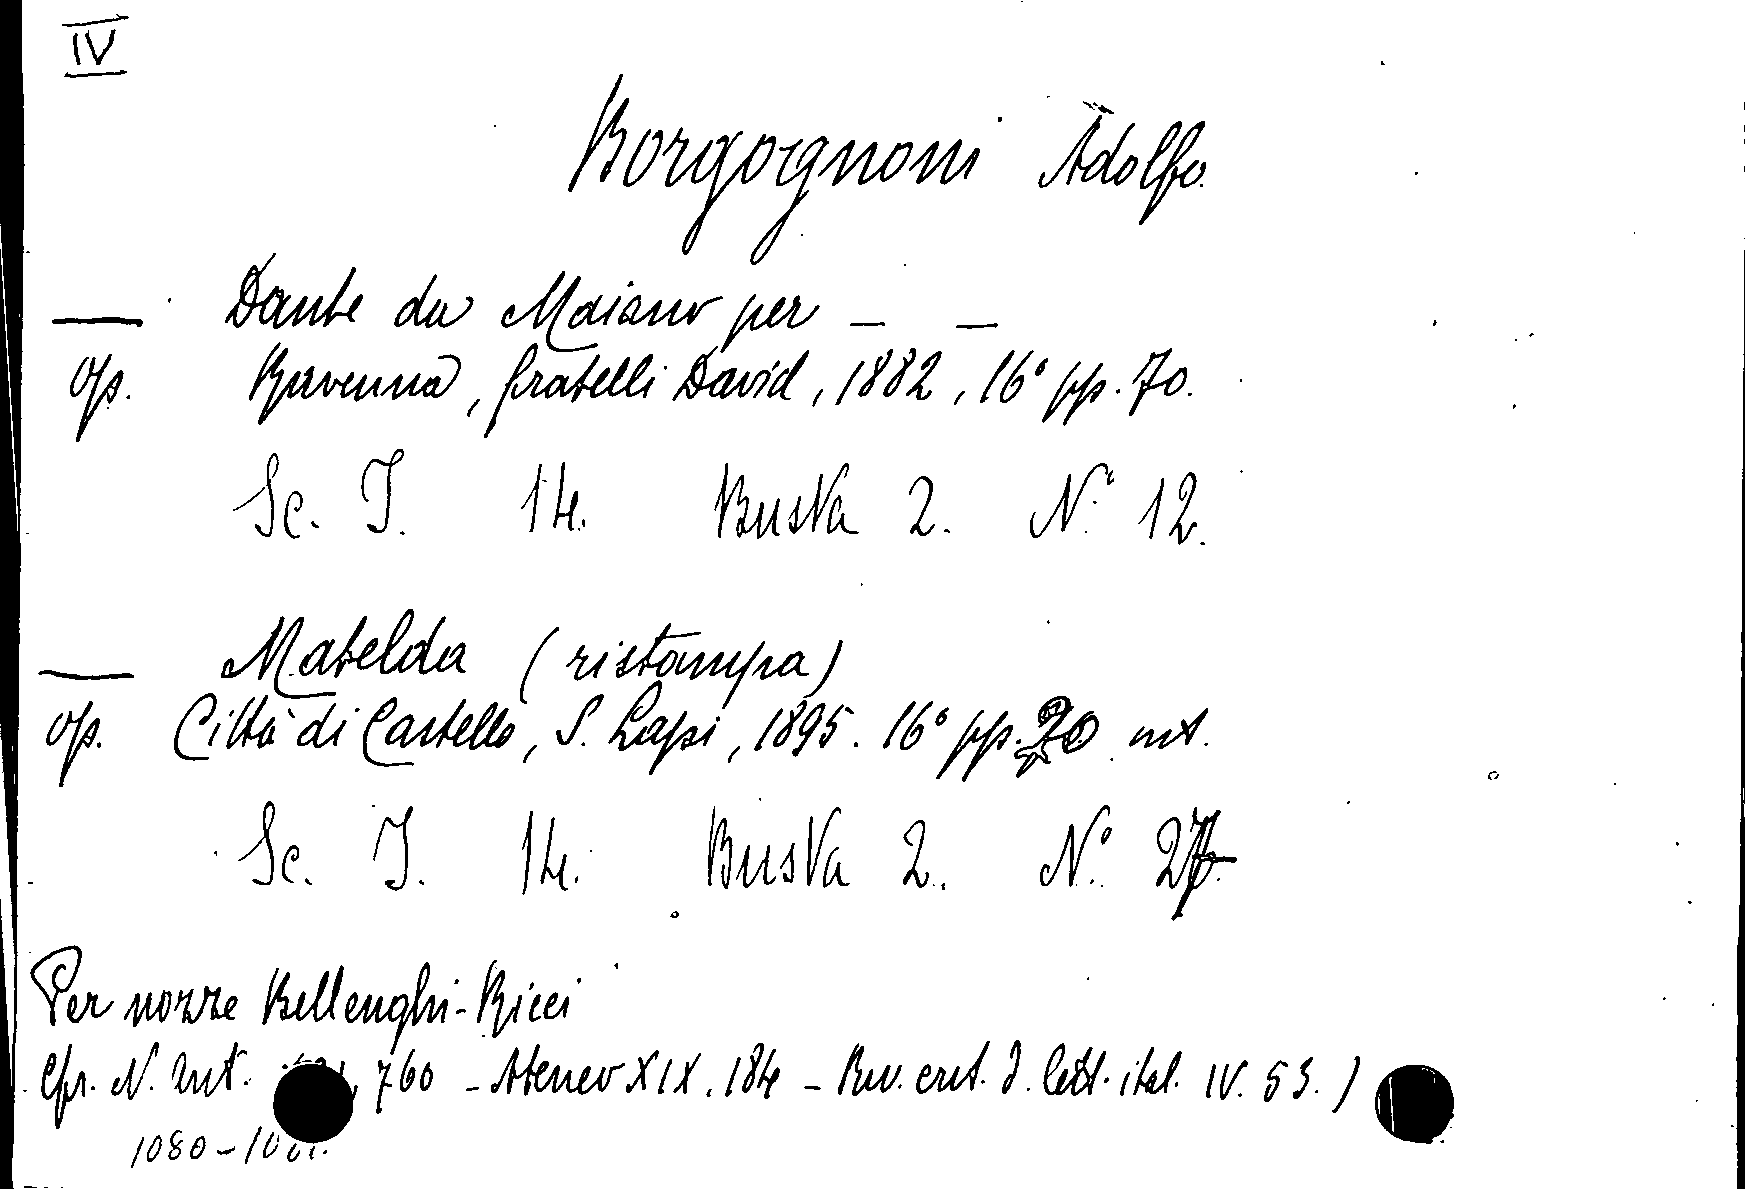 IV
Borgognoni Adolfo.
— Dante da Maiano per — —
op. Ravenna, fratelli David, 1882, 16° pp. 70.
Sc. I. 14. Busta 2. N.° 12.
— Matelda (ristampa)
op. Città di Castello, S. Lapi, 1895. 16° pp. 20 int.
Sc. I. 14. Busta 2. N.° 27.
Per nozze Bellenghi-Ricci
Cfr. N. Ant. 760 - Ateneo XIX. 184 - Riv. crit. d. lett. ital. IV. 53.)
1080-